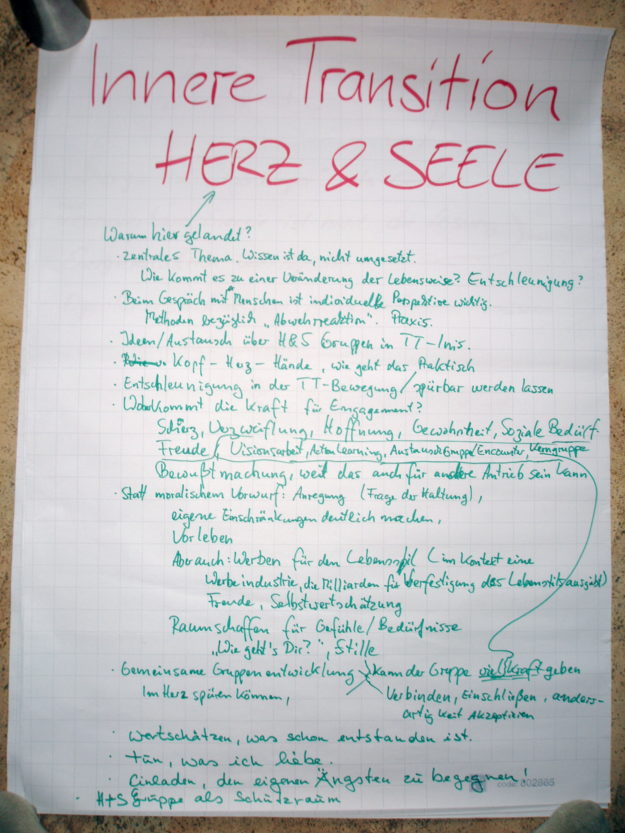 Innere Transition
HERZ & SEELE
Warum hier gelandet?
· zentrales Thema. Wissen ist da, nicht umgesetzt.
Wie kommt es zu einer Veränderung der Lebensweise? Entschleunigung?
· Beim Gespräch mit Menschen ist individuelle Perspektive wichtig.
Methoden bezüglich „Abwehrreaktion“. Praxis.
· Ideen/Austausch über H&S Gruppen in TT-Inis.
· Kopf-Herz-Hände, wie geht das Praktisch
· Entschleunigung in der TT-Bewegung/spürbar werden lassen
· Woher kommt die Kraft für Engagement?
Schmerz, Verzweiflung, Hoffnung, Gewohnheit, Soziale Bedürf
Freude (Visionsarbeit, Action Learning, Austausch Gruppe/Encounter, Kerngruppe
Bewußtmachung, weil das auch für andere Antrieb sein kann
· Statt moralischem Vorwurf: Anregung (Frage der Haltung),
eigene Einschränkungen deutlich machen,
Vorleben
Aber auch: Werben für den Lebensstil (im Kontext eine
Werbeindustrie, die Milliarden für Verfestigung des Lebensstils ausgibt)
Freude, Selbstwertschätzung
Raum schaffen für Gefühle/Bedürfnisse
„Wie geht's Dir?“, Stille
· Gemeinsame Gruppenentwicklung > kann der Gruppe viel Kraft geben
Im Herz spüren können,
Verbinden, Einschließen, anders-
artigkeit Akzeptieren
· Wertschätzen, was schon entstanden ist.
· tun, was ich liebe.
· Einladen, den eigenen Ängsten zu begegnen!
· H+S Gruppe als Schutzraum